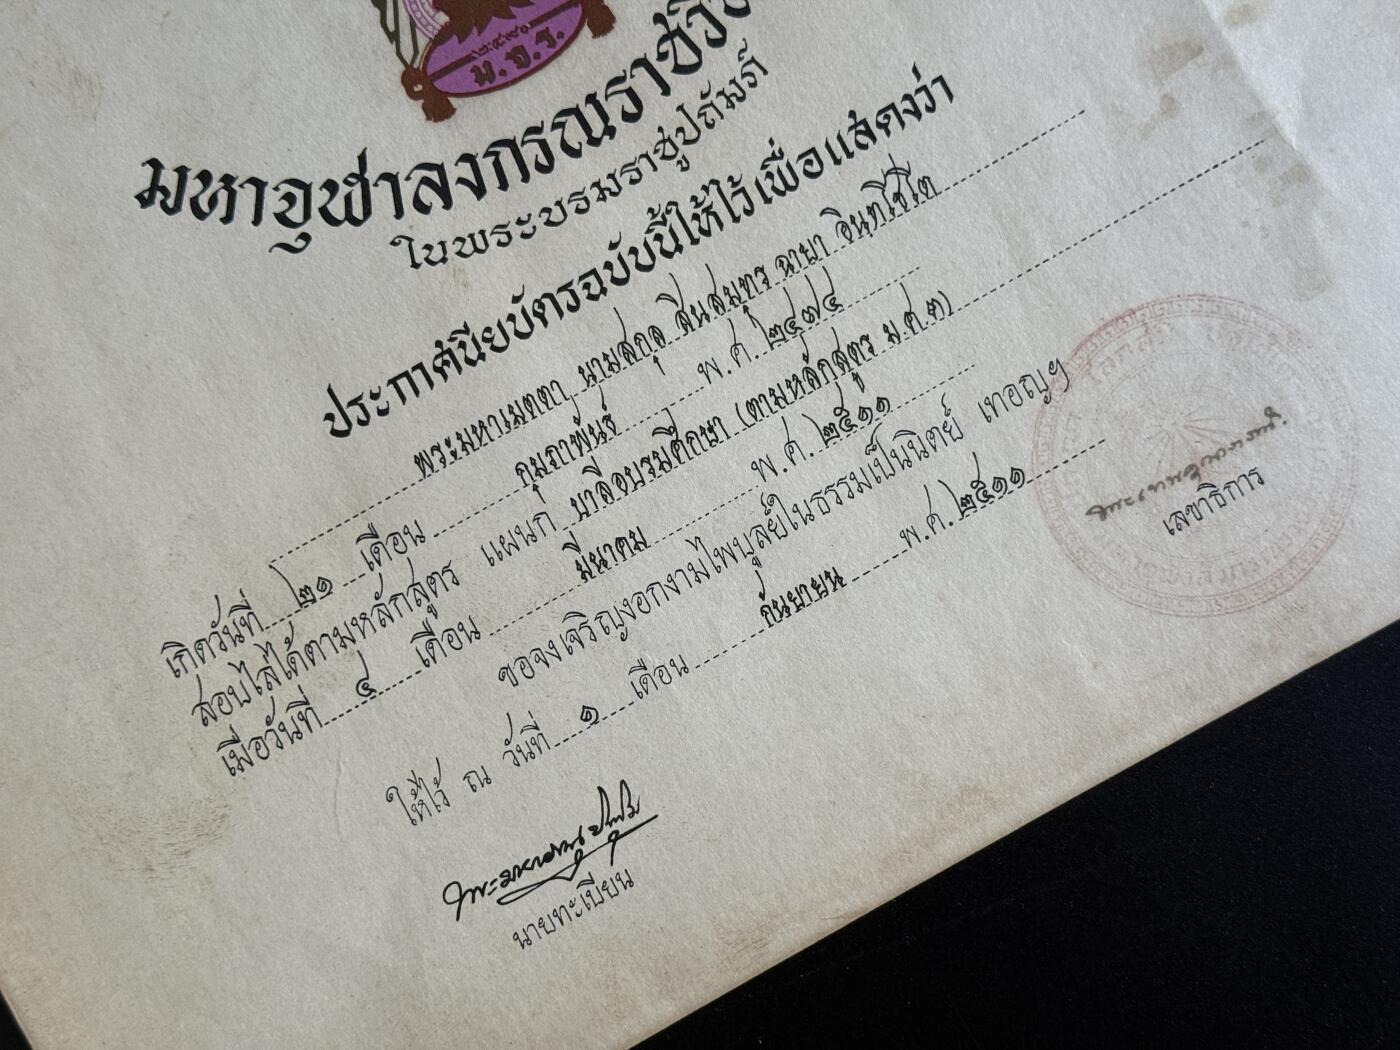 ๒๔๙๐
ม.จ.ร.
มหาจุฬาลงกรณราชวิ
ในพระบรมราชูปถัมภ์
ประกาศนียบัตรฉบับนี้ให้ไว้เพื่อแสดงว่า
พระมหาเมตตา นามสกุล สีนสมุทร ฉายา อินฺทโชโต
เกิดวันที่ ๒๑ เดือน กุมภาพันธ์ พ.ศ. ๒๔๗๔
สอบไล่ได้ตามหลักสูตร แผนก บาลีอบรมศึกษา (ตามหลักสูตร ม.ศ.๓)
เมื่อวันที่ ๔ เดือน มีนาคม พ.ศ. ๒๕๑๑
ขอจงเจริญงอกงามไพบูลย์ในธรรมเป็นนิตย์ เทอญฯ
ให้ไว้ ณ วันที่ ๑ เดือน กันยายน พ.ศ. ๒๕๑๑
เลขาธิการ
นายทะเบียน